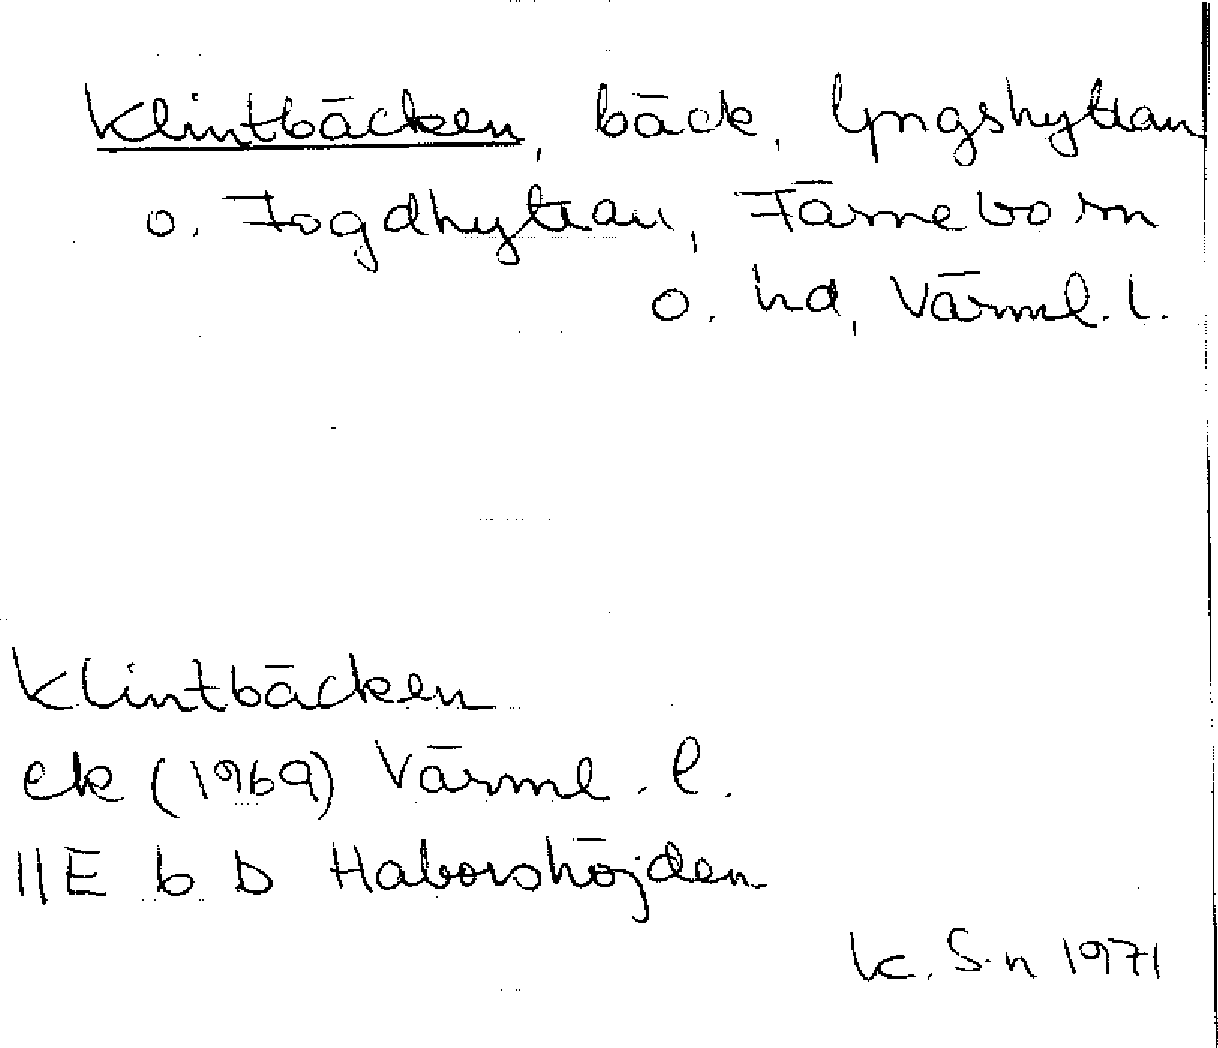 Klintbäcken, bäck, Yngshyttan
o. Fogdhyttan, Färnebo sn
o. hd, Värml. l.
Klintbäcken
ek (1969) Värml. l.
11E b D Haborshöjden
K. S-n 1971